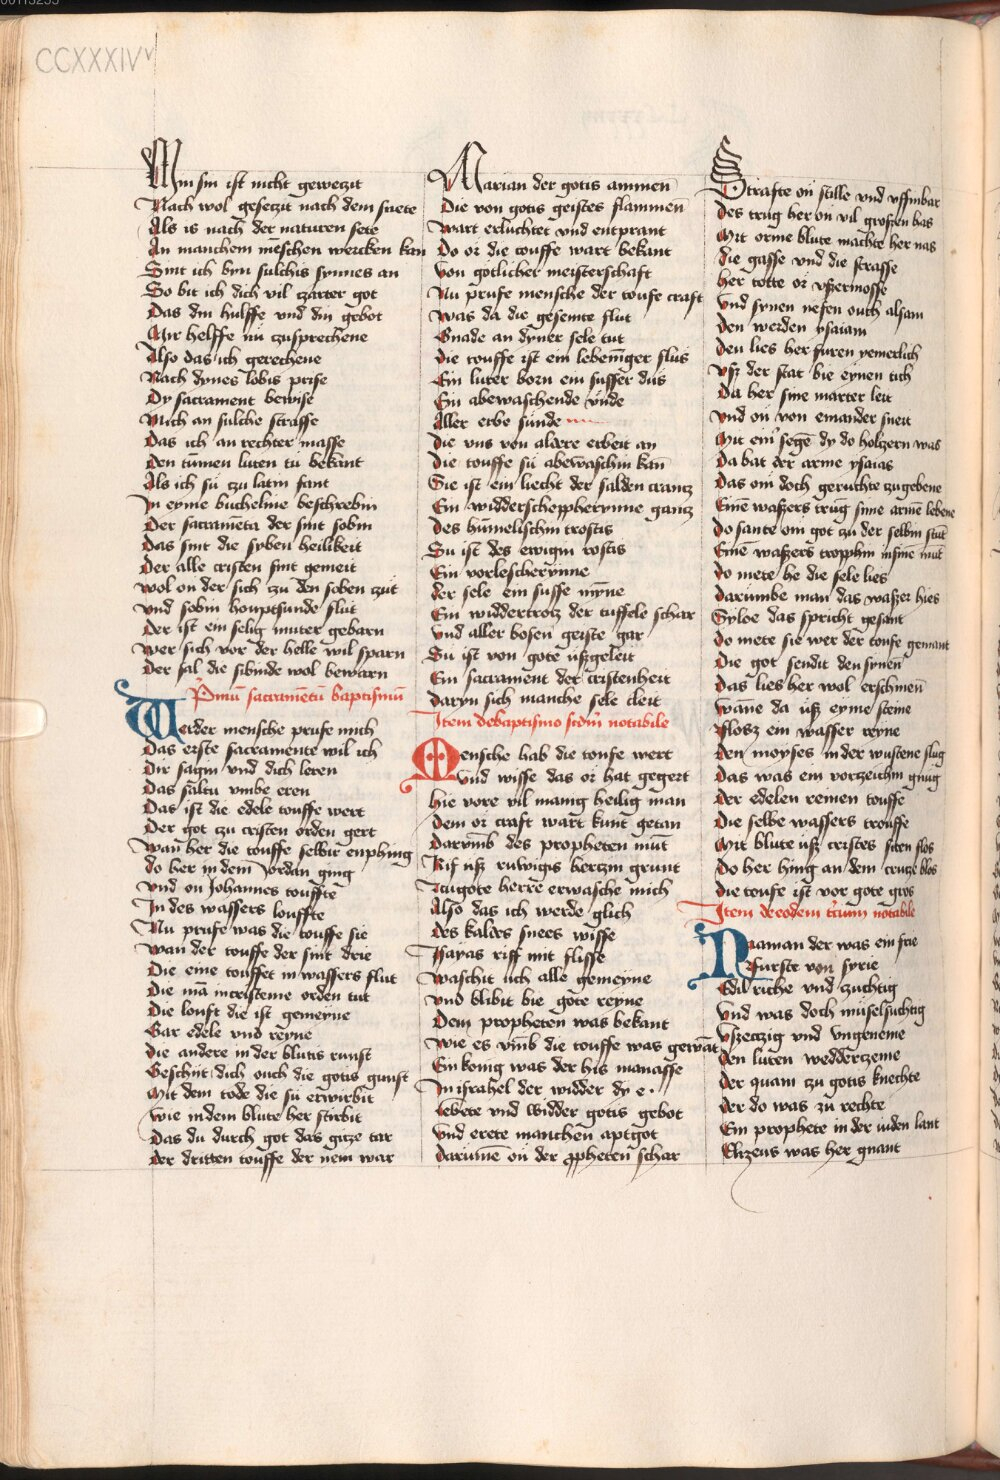 00113255
CCXXXIVv
Myn sin ist nicht geweczit
Nach wol gesetzit nach dem suete
Als is nach der naturen sete
An manchem menschen wercken kan
Sint ich byn sulchis synnes an
So bit ich dich vil czarter got
Das din hulffe vnd din gebot
Mir helffe nu zusprechene
Also das ich gerechene
Nach dynes lobis prise
Dy sacrament bewise
Mich an sulche strasse
Das ich an rechter masse
Den tummen luten tu bekant
Als ich su czu latin fant
In eyme bucheline beschrebin
Der sacrameta der sint sobin
Das sint die syben heilikeit
Der alle cristen sint gemeit
wol on der sich zu den soben zut
vnd sobin houptsunde flut
Der ist ein selig muter gebarn
wer sich vor der helle wil sparn
Der sal die sibinde wol bewarn
Pmu sacrametu baptismu
Werder mensche prufe mich
Das erste sacramente wil ich
Dir sagin vnd dich leren
Das saltu vmbe eren
Das ist die edele touffe wert
Der got czu cristen orden gert
wan her die touffe selbir enphing
do her in dem Jordan ging
vnd on Johannes touffte
In des wassers louffte
Nu prufe was die touffe sie
wan der touffe der sint drie
Die eine touffet in wassers flut
Die ma in cristeme orden tut
Die louft die ist gemeyne
Gar edele vnd reyne
die andere in der blutis runst
Geschiit dich ouch die gotis gunst
Mit dem tode die su erwirbit
wie in dem blute her stirbit
Das du durch got das gicze tar
der dritten touffe der nem war
Marian der gotis ammen
Die von gotis geistes flammen
wart erluchtet vnd entprant
Do or die touffe wart bekant
von gotlicher meisterschaft
Nu prufe mensche der toufe craft
was da die gesemte flut
Gnade an dyner sele tut
die touffe ist ein lebeniger flus
Ein luter born ein susser dus
Ein abewaschende vnde
Aller erbe sunde
die vns von aldere erbeit an
die touffe su abewaschin kan
Sie ist ein liecht der salden crancz
Ein widderscheppherynne gancz
des humelischin trostis
Su ist des ewigin rostis
Ein vorlescherynne
der sele ein susse mynne
Ein widdertrotz der tuffele schar
vnd aller bosen geiste gar
Su ist von gote ußgeleit
Ein sacrament der cristenheit
daryn sich manche sele cleit
Item de baptismo scdm notabile
Mensche hab die toufe wert
vnd wisse das or hat gegert
hie vore vil manig heilig man
dem or craft wart kunt getan
darumb des propheten mut
Rif uß ruwigis herczin grunt
Czu gote herre erwasche mich
Also das ich werde glich
des kaldes snees wisse
Isayas riff mit flisse
waschit uch alle gemeyne
vnd blibit bie gote reyne
Dem propheten was bekant
wie es vmb die touffe was gewat
Ein konig was der his manasse
In israhel der widder dy e
lebete vnd widder gotis gebot
vnd erete manchen aptgot
darume on der ppheten schar
Strafte on stille vnd vffinbar
des trug her on vil grossen has
Mit orme blute machte her nas
die gasse vnd die strasse
her totte or vßermosse
vnd synen nefen ouch alsam
den werden ysaiam
den lies her furen yemerlich
vß der stat bie eynen tich
Da her sine marter leit
vnd on von einander sneit
Mit einr segen dy do holczern was
Da bat der arme ysaias
Das om doch geruchte zugebene
Eine waßers trug sime arme lebene
do sante om got zu der selbin stut
Eine waßers tropphin in sine mut
do mete he die sele lies
darumbe man das waßer hies
Syloe das spricht gesant
do mete sie wer der toufe gemant
Die got sendit den synen
das lies her wol erschinen
wane da uß eyme steine
flosz ein wasser reyne
den moyses in der wustene slug
das was ein vorzeichin gnug
der edelen reinen touffe
Die selbe wassers trouffe
Mit blute uß cristes siten flos
Do her hing an dem crucze blos
die toufe ist vor gote gros
Item de eodem tcium notabile
Naaman der was ein frie
furste von syrie
Edil riche vnd zuchtig
vnd was doch muselsuchtig
vßeczig vnd vngeneme
den luten wedderczeme
der quam zu gotis knechte
der do was zu rechte
Ein prophete in der iuden lant
Elizeus was her gnant